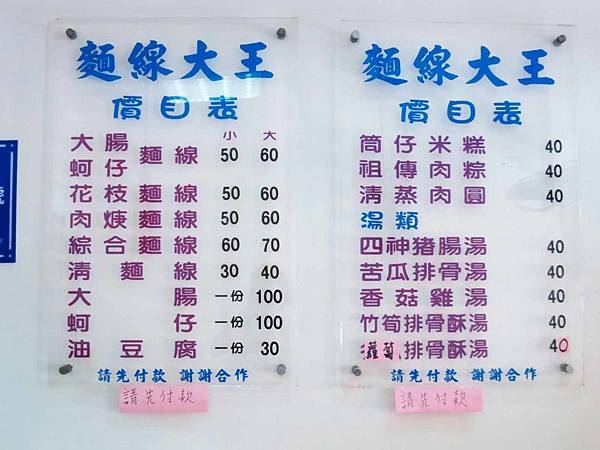 麵線大王
價目表
小 大
大腸
蚵仔 麵線 50 60
花枝麵線 50 60
肉焿麵線 50 60
綜合麵線 60 70
清麵線 30 40
大腸 一份 100
蚵仔 一份 100
油豆腐 一份 30
請先付款 謝謝合作
請先付款
麵線大王
價目表
筒仔米糕 40
祖傳肉粽 40
清蒸肉圓 40
湯類
四神猪腸湯 40
苦瓜排骨湯 40
香菇雞湯 40
竹筍排骨酥湯 40
蘿蔔排骨酥湯 40
請先付款 謝謝合作
請先付款